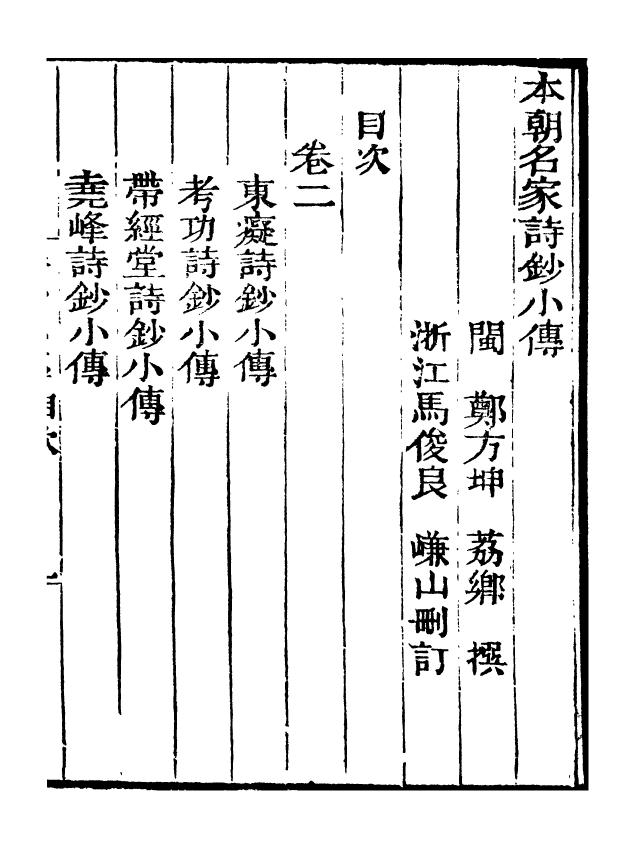 本朝名家詩鈔小傳
閩　鄭方坤　荔鄉　撰
浙江馬俊良　嵰山刪訂
目次
卷二
東癡詩鈔小傳
考功詩鈔小傳
帶經堂詩鈔小傳
堯峰詩鈔小傳